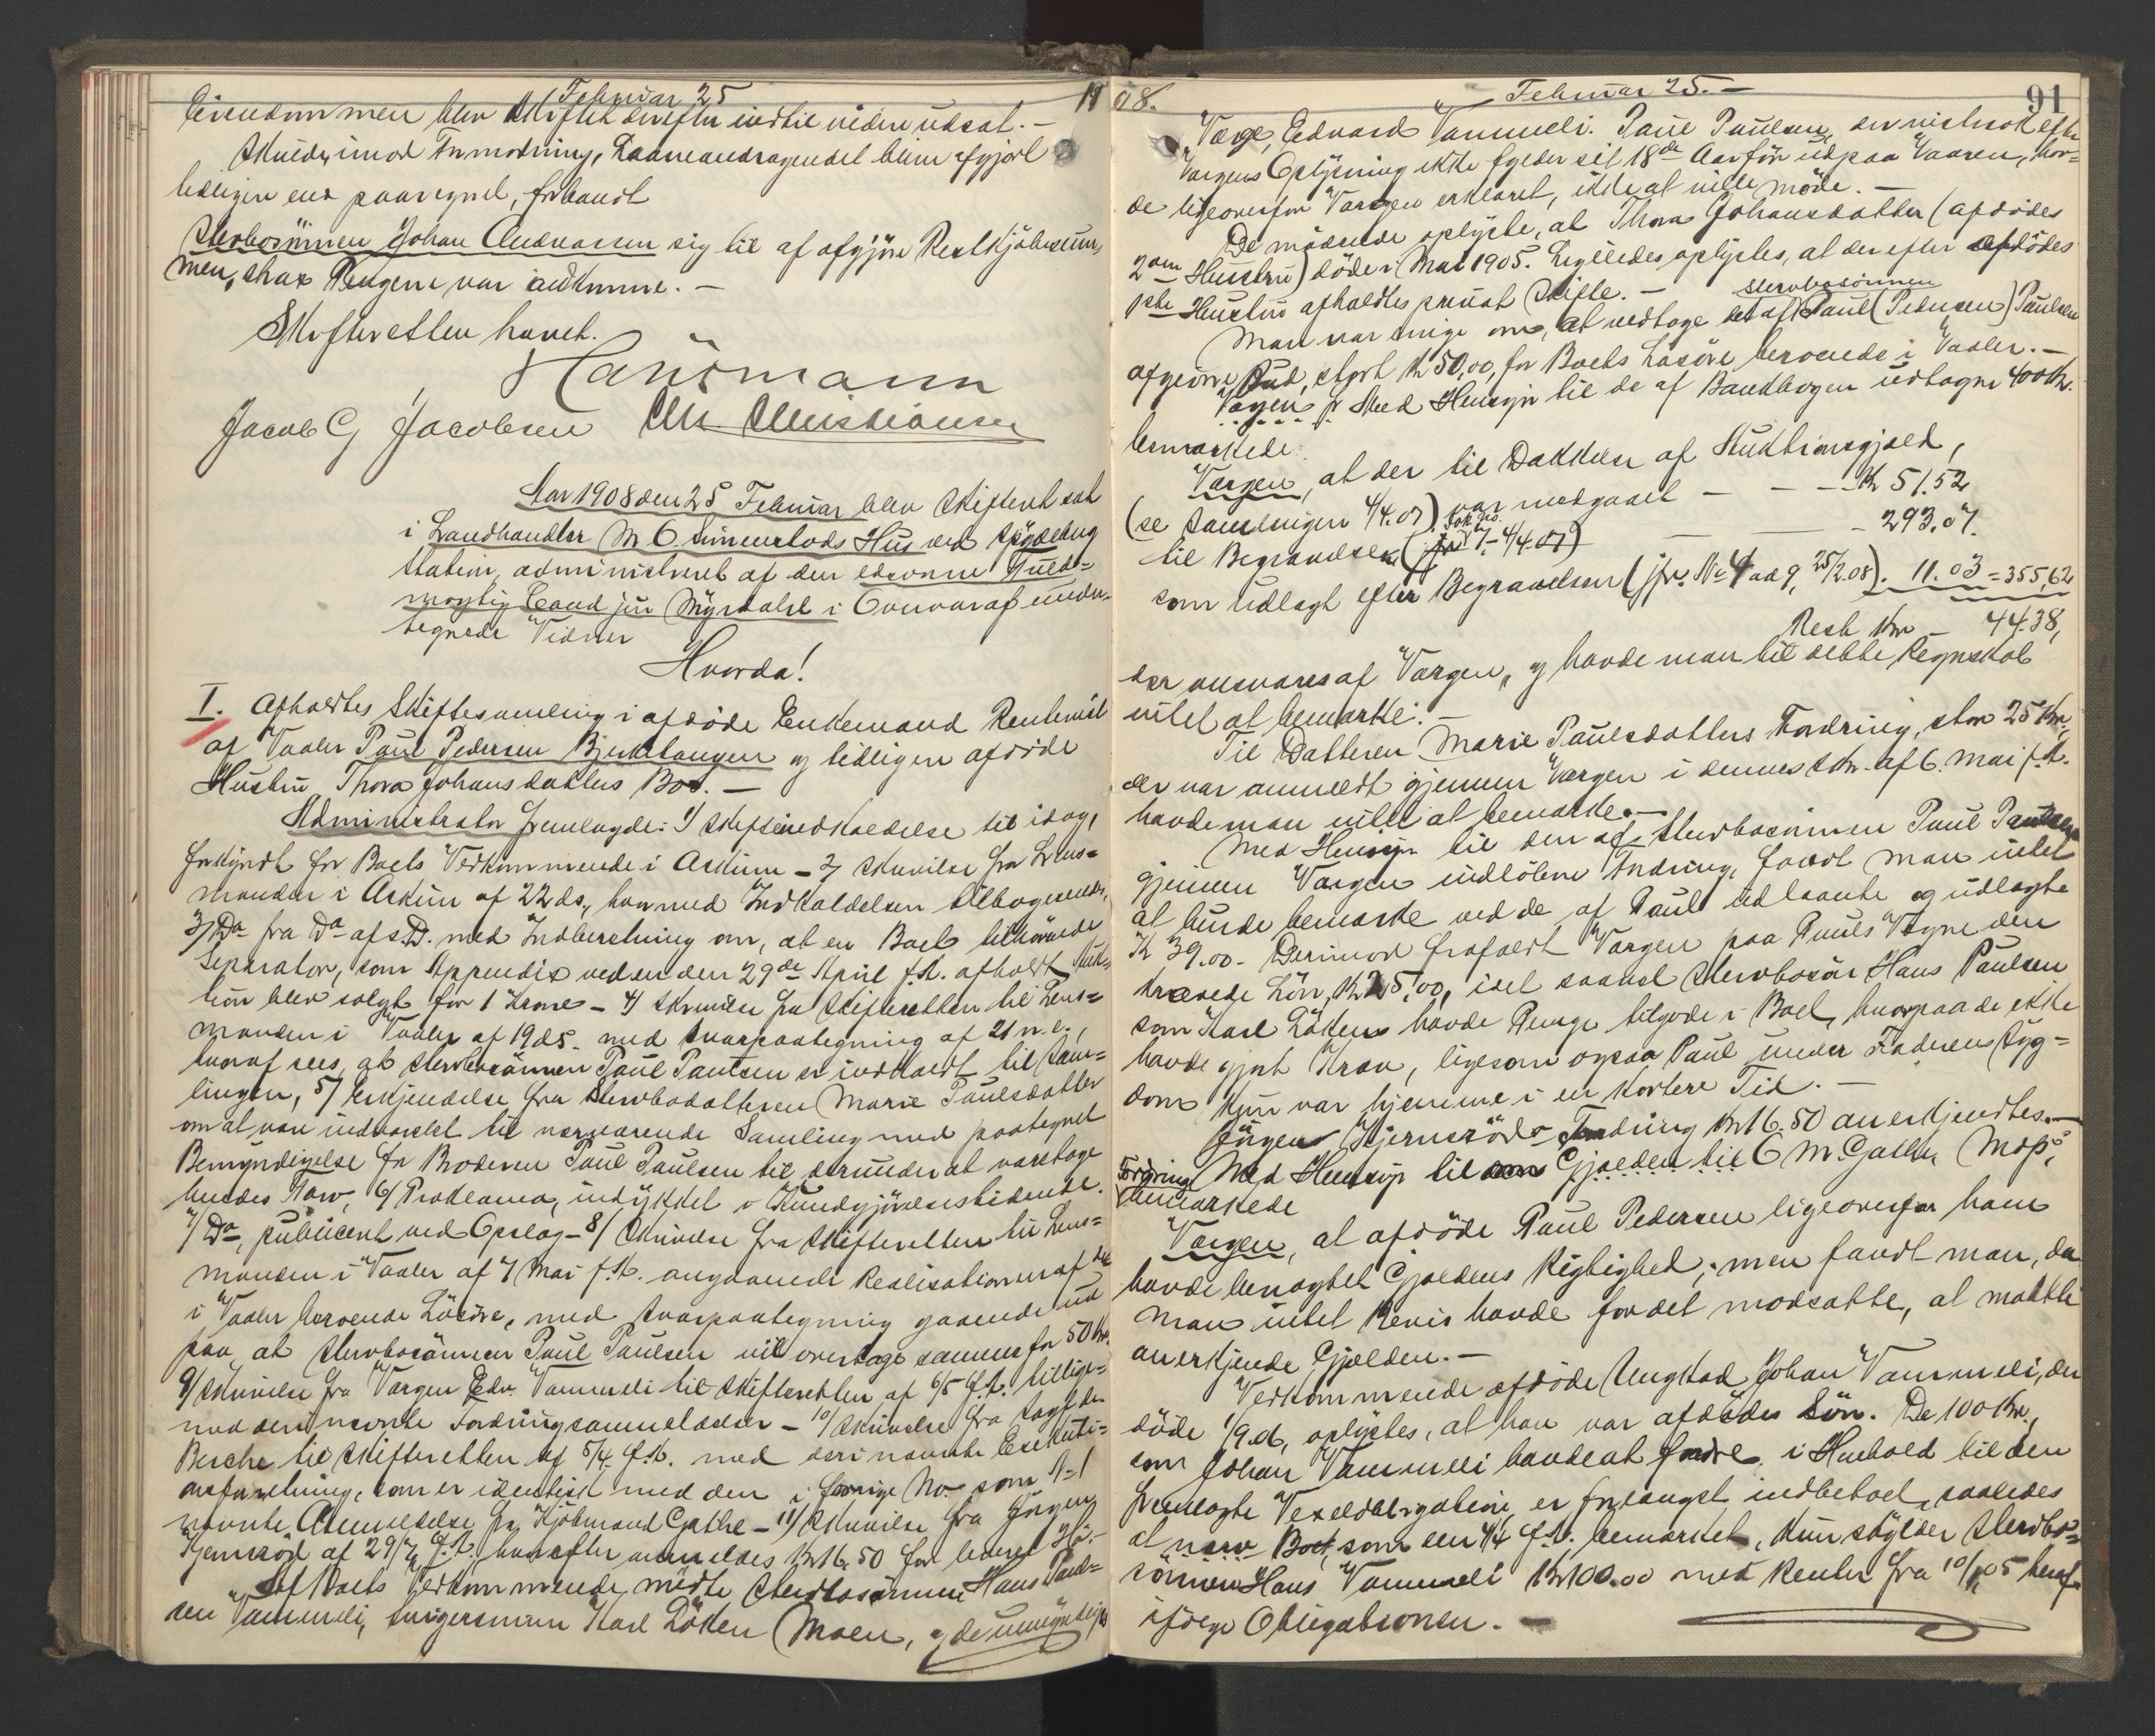 Februar 25
Eiendommen blev Skiftet derefter indtil videre udsat. –
Skulde, imod Formodning, Laaneandragendet blive afgjort
tidligere end paaregnet, forbandt
Stervbosönnen Johan Andreassen sig til at afgjöre Restkjöbesum-
men, strax Pengene var indkomne. –
Skifteretten hævet.
Hansmann
Jacob G Jacobsen Chr. Christiansen
Aar 1908 den 25 Februar blev Skifteret sat
i Landhandler M O Simenstads Hus ved Spydeberg
Station, administreret af den edsvorne Fuld-
mægtig Cand jur Myrdahl i Overvær af under-
tegnede Vidner
Hvorda!
I. Afholdtes Skiftesamling i afdöde Enkemand Rentenist
af Vaaler Paul Pedersen Bjerketangen og tidligere afdöde
Hustru Thora Johansdatters Bo. –
Administrator fremlagde: 1/ Skifteindkaldelse til idag,
forkyndt for Boets Vedkommende i Askim – 2/ Skrivelse fra Lens-
manden i Askim af 22 ds., hvormed Indkaldelsen tilbagesendes,
3/ Do fra Do af s.D. med Indberetning om, at en Boet tilhörende
Separator, som Appendix ved en den 29de April f.A. afholdt Auk-
tion blev solgt for 1 Krone – 4/ Skrivelse fra Skifteretten til Lens-
manden i Vaaler af 19 ds. med Svarpaategning af 21 n.e.,
hvoraf sees, at Stervbosönnen Paul Paulsen er indkaldt til Sam-
lingen, 5/ Erkjendelse fra Stervbodatteren Marie Paulsdatter
om at være indvarslet til nærværende Samling med paategnet
Bemyndigelse for Broderen Paul Paulsen til derunder at varetage
hendes Tarv, 6/ Proklama, indrykket i Kundgjörelsestidende.
7/ Do, publicert ved Opslag – 8/ Skrivelse fra Skifteretten til Lens-
manden i Vaaler af 7 Mai f.A. angaaende Realisationen af de
i Vaaler beroende Lösöre, med Svarpaategning gaaende ud
paa, at Stervbosönnen Paul Paulsen vil overtage samme for 50 Kr.
9/ Skrivelse fra Værgen Edv. Vammeli til Skifteretten af 6/5 f.A. tillige-
med deri nævnte Fordringsanmeldelser – 10/ Skrivelse fra Sagförer
Berche til Skifteretten af 5/4 f.A. med deri nævnte Exekuti-
onsforretning, som er identisk med den i forrige No. som No 1
nævnte Anmeldelse fra Kjöbmand Gathe – 11/ Skrivelse fra Jörgen
Hjemsröd af 29/4 f.A., hvorefter anmeldes Kr 16.50 for leveret Hö. –
Af Boets Vedkommende mödte Stervbosönnen Hans Paul-
sen Vammeli, Svigersönnen Karl Löken Moen, og de umyndiges
19
08.
Februar 25. –
91
Værge, Edvard Vammeli. Paul Paulsen, der nistnok efter
Værgens Oplysning ikke fylder sit 18de Aar för udpaa Vaaren, hav-
de ligeoverfor Værgen erklæret, ikke at ville möde. –
De mödende oplyste, at Thora Johansdatter (afdödes
2den Hustru) döde i Mai 1905. Ligeledes oplystes, at der efter afdödes
1ste Hustru afholdtes privat Skifte. –
Stervbosönnen
Man var enige om, at vedtage det af Paul (Pedersen) Paulsen
afgivne Bud, stort Kr 50,00, for Boets Lösöre beroende i Vaaler. –
Værgen Med Hensyn til de af Bankbogen udtagne 400 Kr.
bemærkede
Værgen, at der til Dækkelse af Auktionsgjæld,
(se Samlingen 4/4.07) var medgaaet – – – Kr 51.52
til Begravelsen (jfr. Dok No. 7 – 4/4.07) – – 293.07.
som udlagt efter Begravelsen (jfr. No 4 ad 9, 25/2.08). 11.03 = 355,62
Rest Kr – 44.38,
der ansvares af Værgen, og havde man til dette Regnskab
intet at bemærke. –
Til Datteren Marie Paulsdatters Fordring, stor 25 Kr,
der var anmeldt gjennem Værgen i dennes Skr. af 6. Mai f.A.
havde man intet at bemærke. –
Med Hensyn til den af Stervbosönnen Paul Paulsen
gjennem Værgen indlöbne Fordring, fandt man intet
at burde bemærke ved de af Paul udlaante og udlagte
Kr 39.00 – Derimod frafaldt Værgen paa Pauls Vegne den
krævede Lön, Kr 25,00, idet saavel Stervbosön Hans Paulsen
som Karl Löken havde Penge tilgode i Boet, hvorpaa de ikke
havde gjort Krav, ligesom ogsaa Paul under Faderens Syg-
dom kun var hjemme i en kortere Tid. –
Jörgen Hjernsröds Fordring Kr 16.50 anerkjendtes. –
Fordring
Med Hensyn til Gjælden til O M. Gathe, Moss,
bemærkede
Værgen, at afdöde Paul Pedersen ligeoverfor ham
havde benægtet Gjældens Rigtighed; men fandt man, da
man intet Bevis havde for det modsatte, at maatte
anerkjende Gjælden. –
Vedkommende afdöde Ungkarl Johan Vammeli, der
döde 1/9.06, oplystes, at han var afdödes Sön. De 100 Kr.,
som Johan Vammeli havde at fordre i Henhold til den
fremlagte Vexelobligation, er forlængst indbetalt, saaledes
at nærv Boet, som den 4/4 f.A. bemærket, kun skylder Stervbo-
sönnen Hans Vammeli Kr 100.00 med Renter fra 10/1 05 heraf
ifölge Obligationen. –